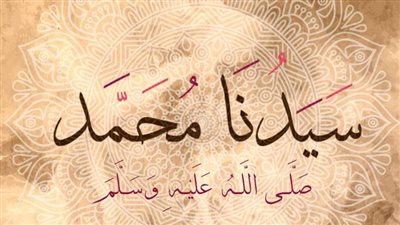 سَيِّدُنَا مُحَمَّد
صَلَّى اللَّهُ عَلَيْهِ وَسَلَّمَ